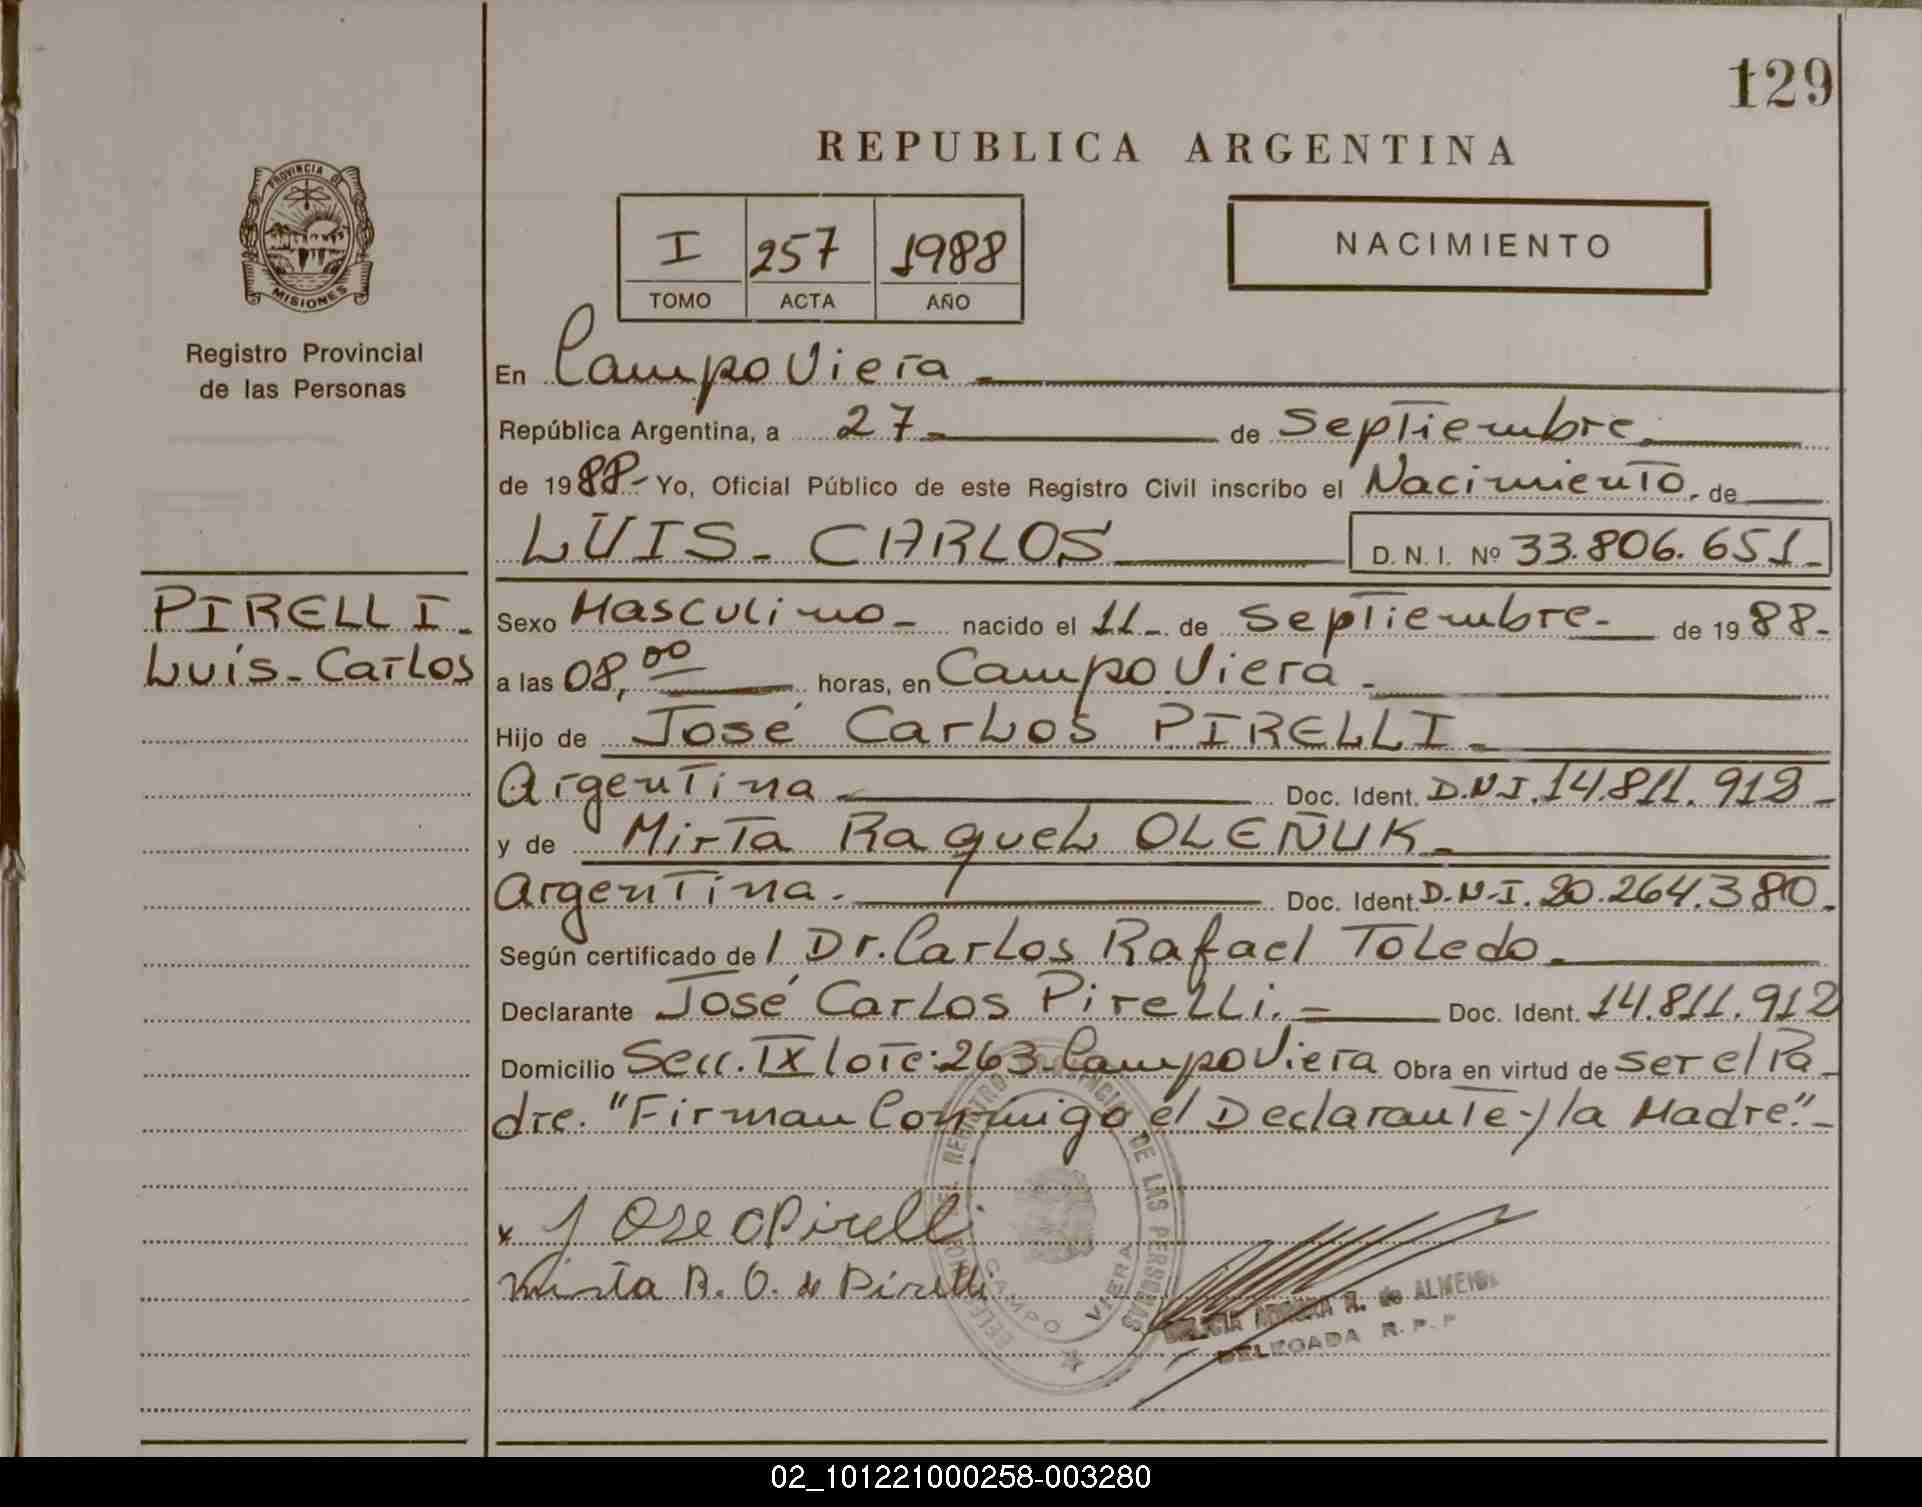 129
REPUBLICA ARGENTINA
PROVINCIA DE
MISIONES
Registro Provincial
de las Personas
I 257 1988
TOMO ACTA AÑO
NACIMIENTO
En Campo Viera -
República Argentina, a 27- de Septiembre.
de 1988- Yo, Oficial Público de este Registro Civil inscribo el Nacimiento. de
LUIS- CARLOS D. N. I. Nº 33.806.651-
PIRELLI-
Luis- Carlos
Sexo Masculino- nacido el 11- de Septiembre- de 1988-
a las 08,00 horas, en Campo Viera -
Hijo de José Carlos PIRELLI-
Argentina - Doc. Ident. D.N.I. 14.811.912-
y de Mirta Raquel OLEÑUK-
Argentina.- Doc. Ident. D.N.I. 20.264.380.
Según certificado de l Dr. Carlos Rafael Toledo.
Declarante José Carlos Pirelli.- Doc. Ident. 14.811.912
Domicilio Secc. IX lote: 263 Campo Viera Obra en virtud de ser el Pa-
dre. "Firman Conmigo el Declarante y la Madre".-
x Jose C Pirelli
Mirta R. O. de Pirelli
REGISTRO DE LAS PERSONAS
CAMPO VIERA
ADRIANA R. de ALMEIDA
DELEGADA R. P. P
02_101221000258-003280